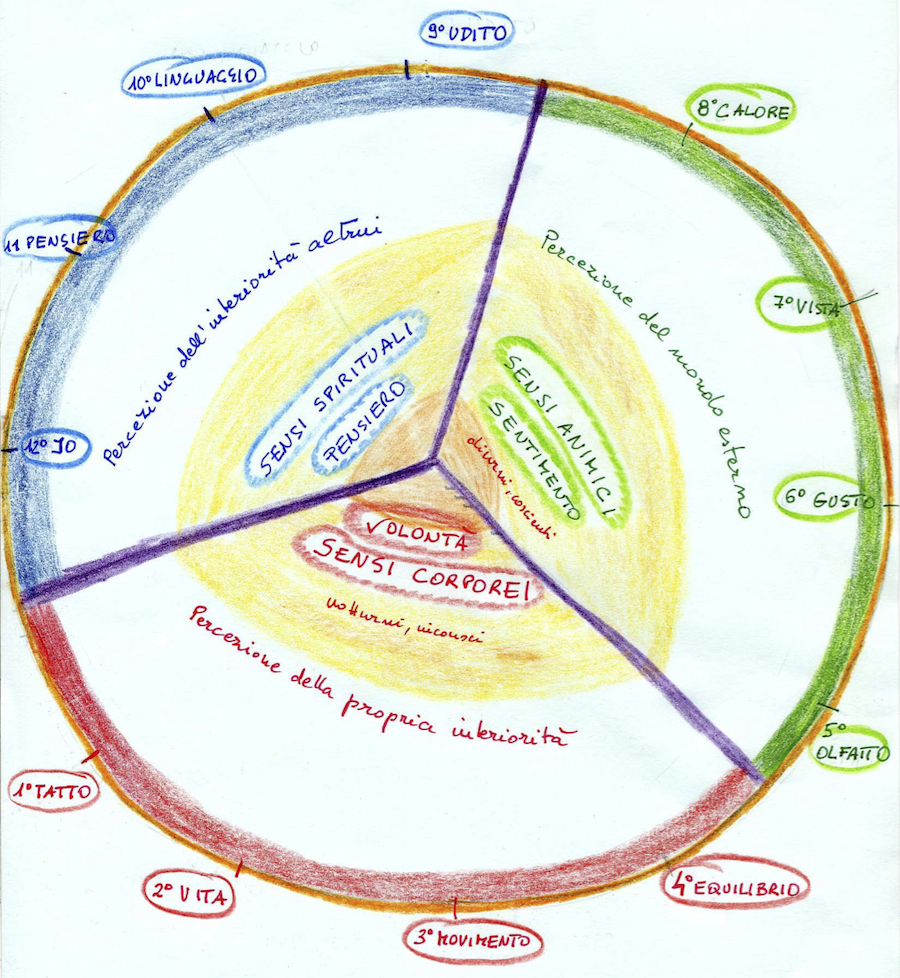 9° UDITO
10° LINGUAGGIO
8° CALORE
11 PENSIERO
7° VISTA
12° IO
6° GUSTO
5°
OLFATTO
1° TATTO
2° VITA
3° MOVIMENTO
4° EQUILIBRIO
Percezione dell'interiorità altrui
SENSI SPIRITUALI
PENSIERO
Percezione del mondo esterno
SENSI ANIMICI
SENTIMENTO
diurni, coscienti
VOLONTÀ
SENSI CORPOREI
notturni, inconsci
Percezione della propria interiorità